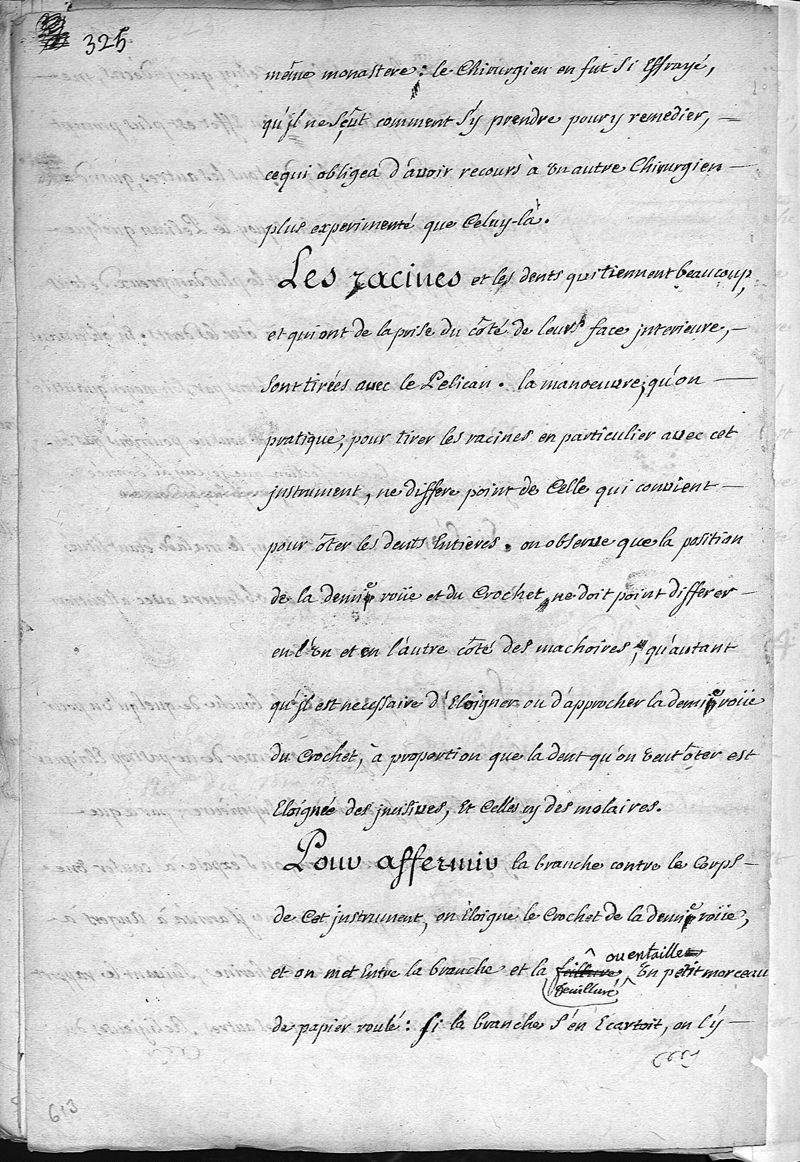 325
même monastere : le Chirurgien en fut si Effrayé,
qu'jl ne sçut comment s'y prendre pour y remedier, —
ce qui obligea d'avoir recours à un autre Chirurgien —
plus experimenté que Celuy-là.
Les racines et les dents qui tiennent beaucoup,
et qui ont de la prise du côté de leurs face jnterieure, —
sont tirées avec le Pelican. la manoeuvre, qu'on —
pratique, pour tirer les racines en particulier avec cet
jnstrument, ne differe point de Celle qui convient —
pour ôter les dents Entieres. on observe que la position
de la demie roüe et du Crochet, ne doit point differer —
en l'un et en l'autre côté des machoires, qu'autant
qu'jl est necessaire d'Eloigner ou d'approcher la demie roüe
du Crochet, à proportion que la dent qu'on veut ôter est
Eloignée des jncisives, Et Celles cy des molaires.
Pour affermir la branche contre le Corps —
de Cet jnstrument, on Eloigne le Crochet de la demie roüe,
ou entaille
et on met Entre la branche et la un petit morceau
feuillure
de papier roulé : si la branche s'en Ecartoit, on l'y —
613